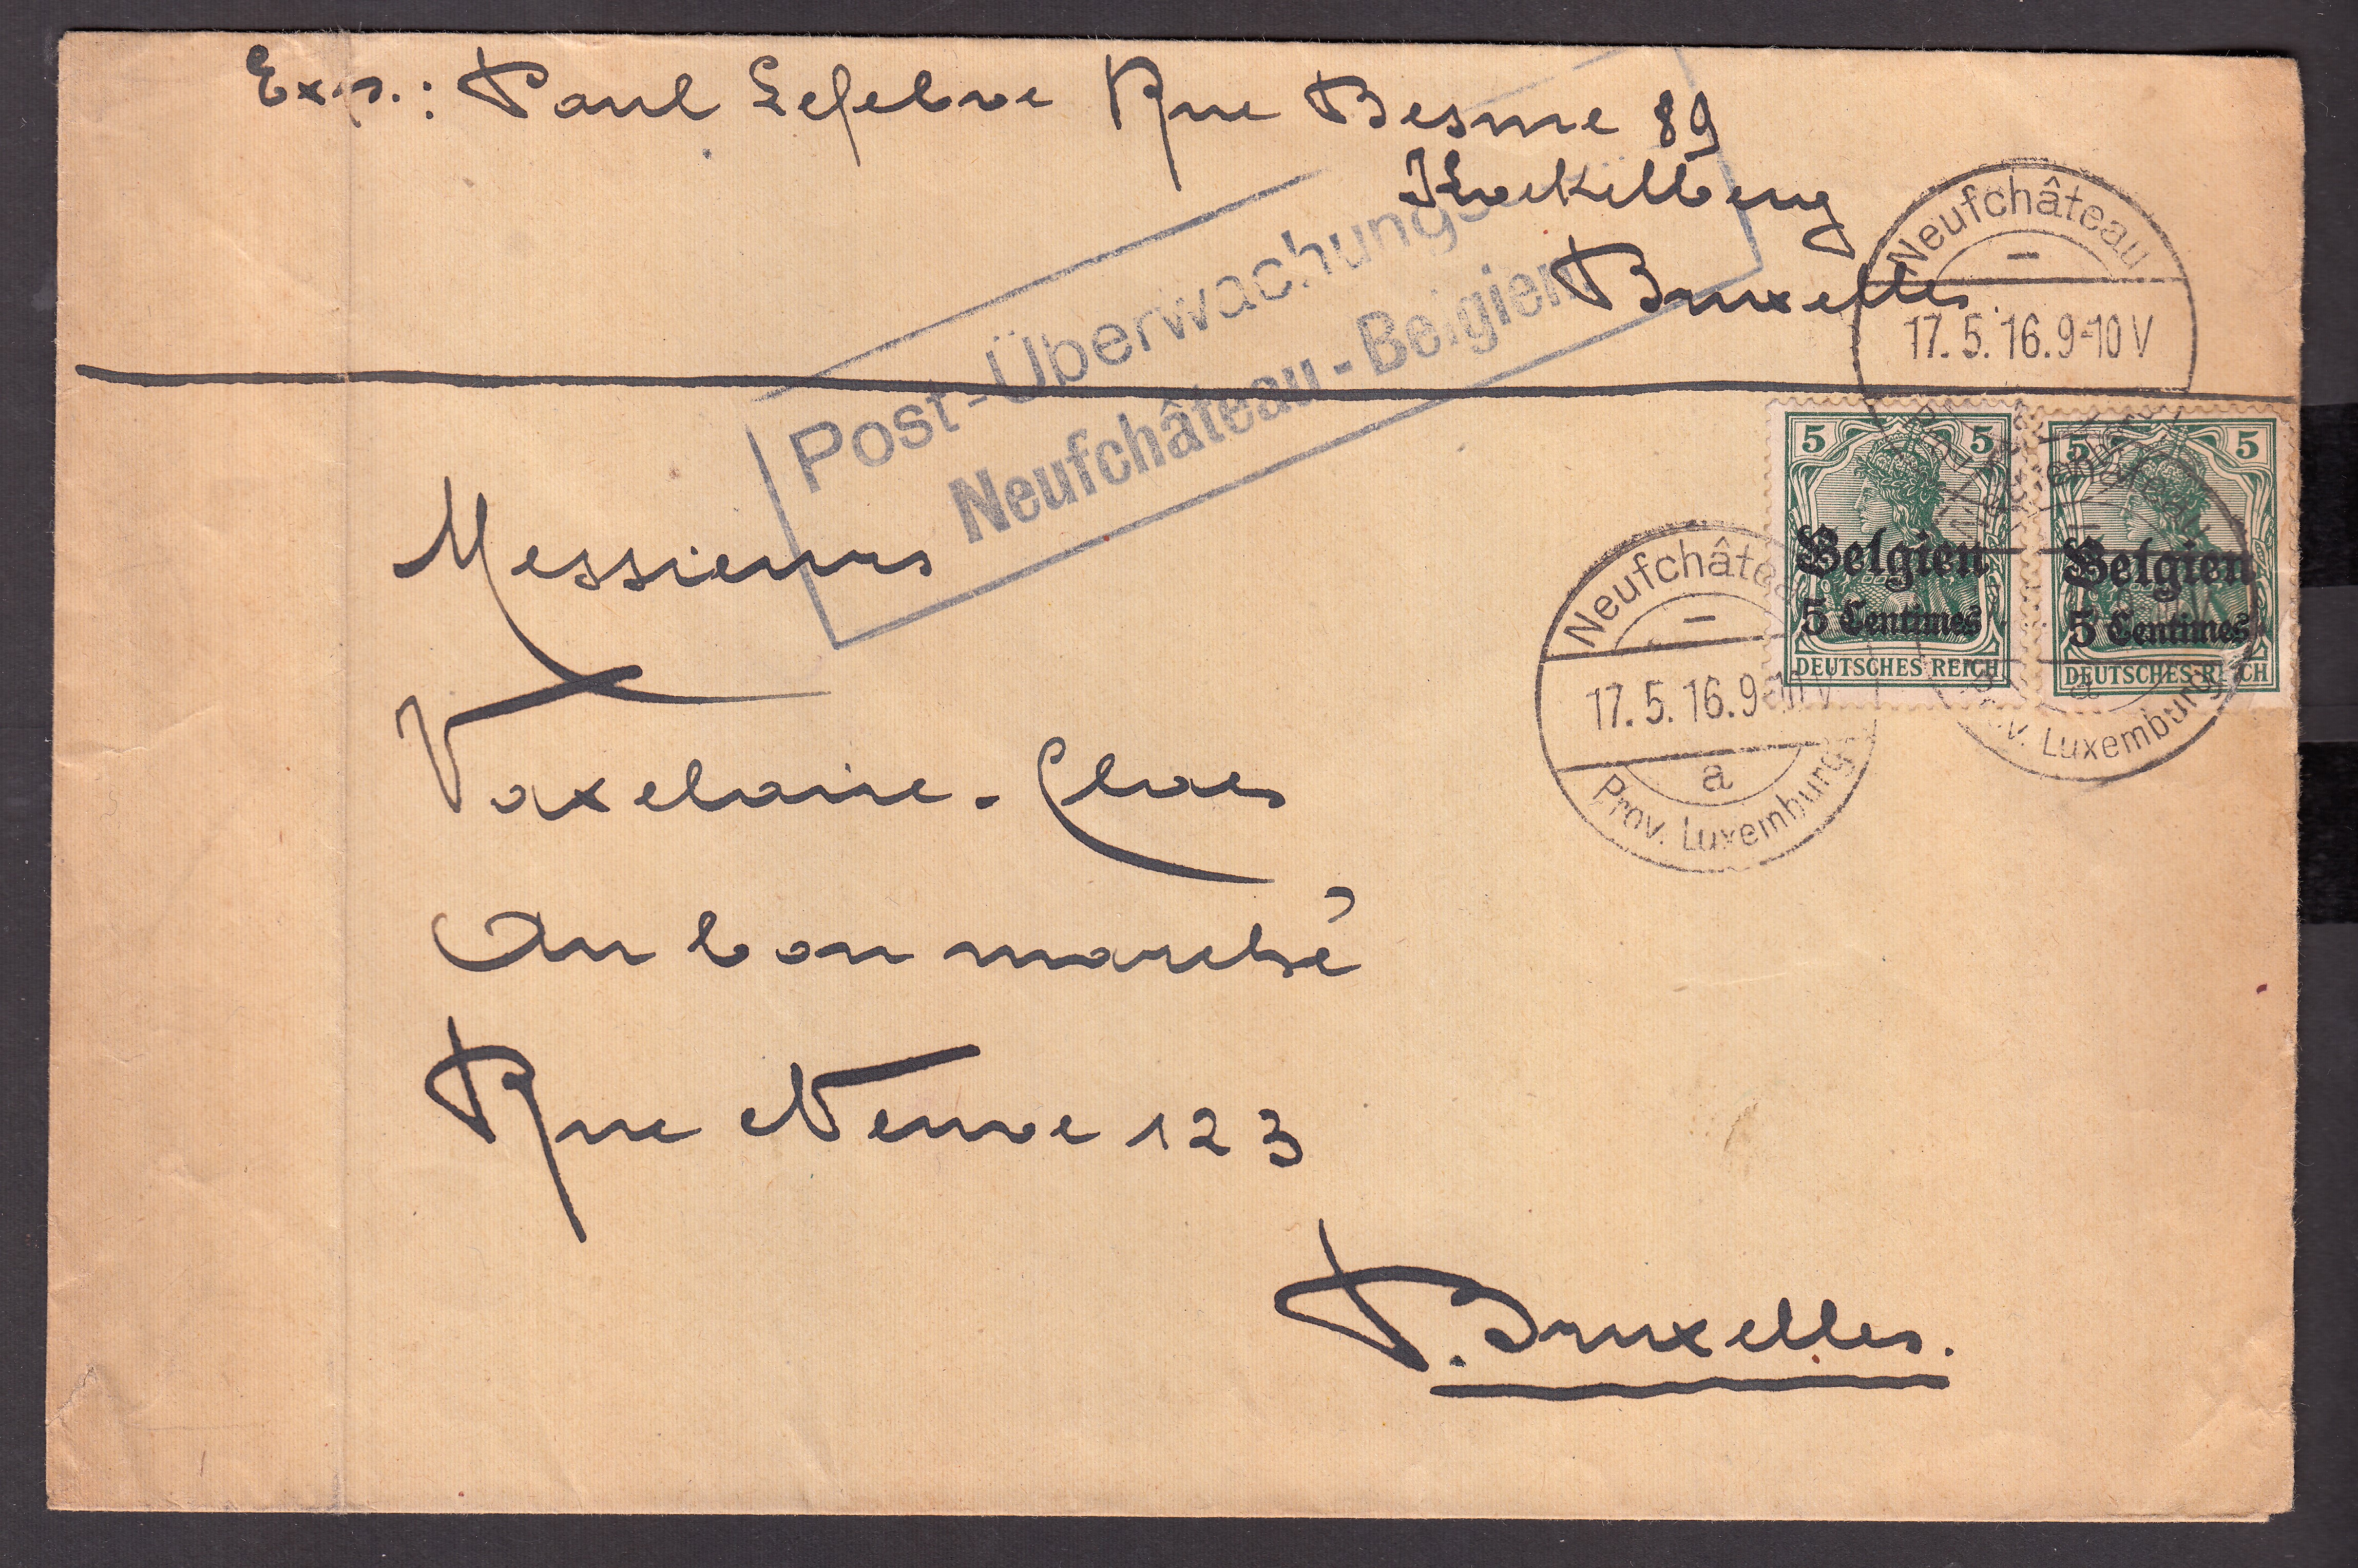 Exp.: Paul Lefebve Rue Besme 89
Koekelberg
Bruxelles
Post-Überwachungs
Neufchâteau-Belgien
Neufchâteau
17.5.16.9-10V
5 5
Belgien
5 Centimes
DEUTSCHES REICH
5 5
Belgien
5 Centimes
DEUTSCHES REICH
a
Prov. Luxemburg
Neufchâteau
17.5.16.9-10V
a
Prov. Luxemburg
Messieurs
Vaxelaire-Claes
Au bon marché
Rue Neuve 123
Bruxelles.